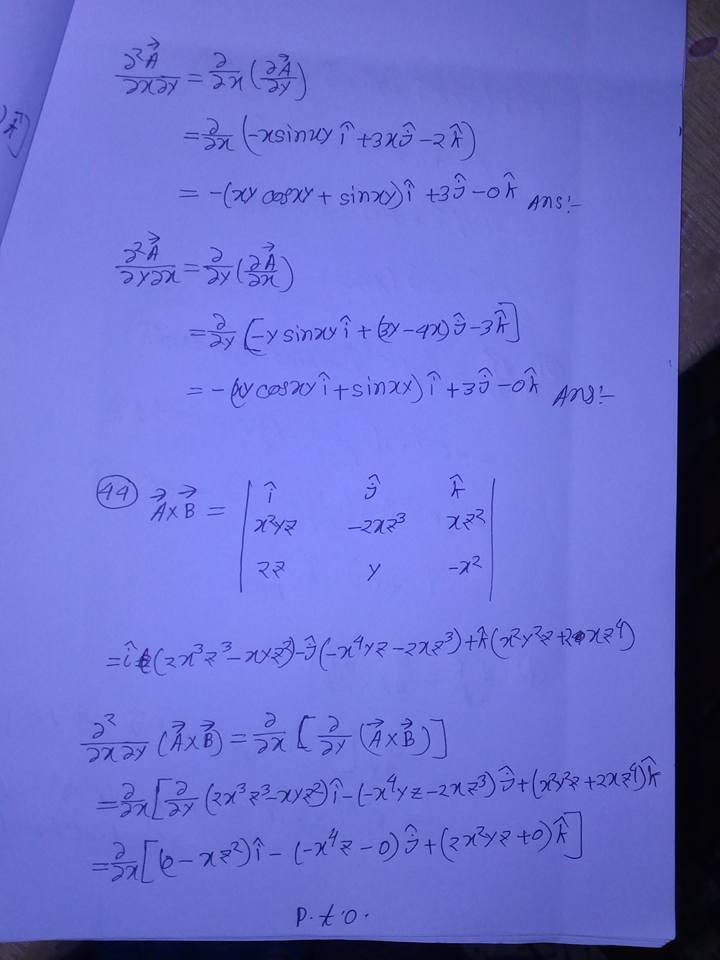 ∂²A⃗/∂x∂y = ∂/∂x (∂A⃗/∂y)
= ∂/∂x (-x sinxy î + 3x ĵ - 2k̂)
= -(xy cosxy + sinxy) î + 3ĵ - 0k̂ Ans:-
∂²A⃗/∂y∂x = ∂/∂y (∂A⃗/∂x)
= ∂/∂y [-y sinxy î + (3y - 4x) ĵ - 3k̂]
= -(xy cosxy î + sinxy) î + 3ĵ - 0k̂ Ans:-
44 A⃗×B⃗ = | î ĵ k̂ |
| x²yz -2xz³ xz² |
| 2z y -x² |
= î (2x³z³ - xyz²) - ĵ (-x⁴yz - 2xz³) + k̂ (x²y²z + 2xz⁴)
∂²/∂x∂y (A⃗×B⃗) = ∂/∂x [∂/∂y (A⃗×B⃗)]
= ∂/∂x [∂/∂y (2x³z³ - xyz²) î - (-x⁴yz - 2xz³) ĵ + (x²y²z + 2xz⁴) k̂
= ∂/∂x [(0 - xz²) î - (-x⁴z - 0) ĵ + (2x²yz + 0) k̂]
P.t.O.